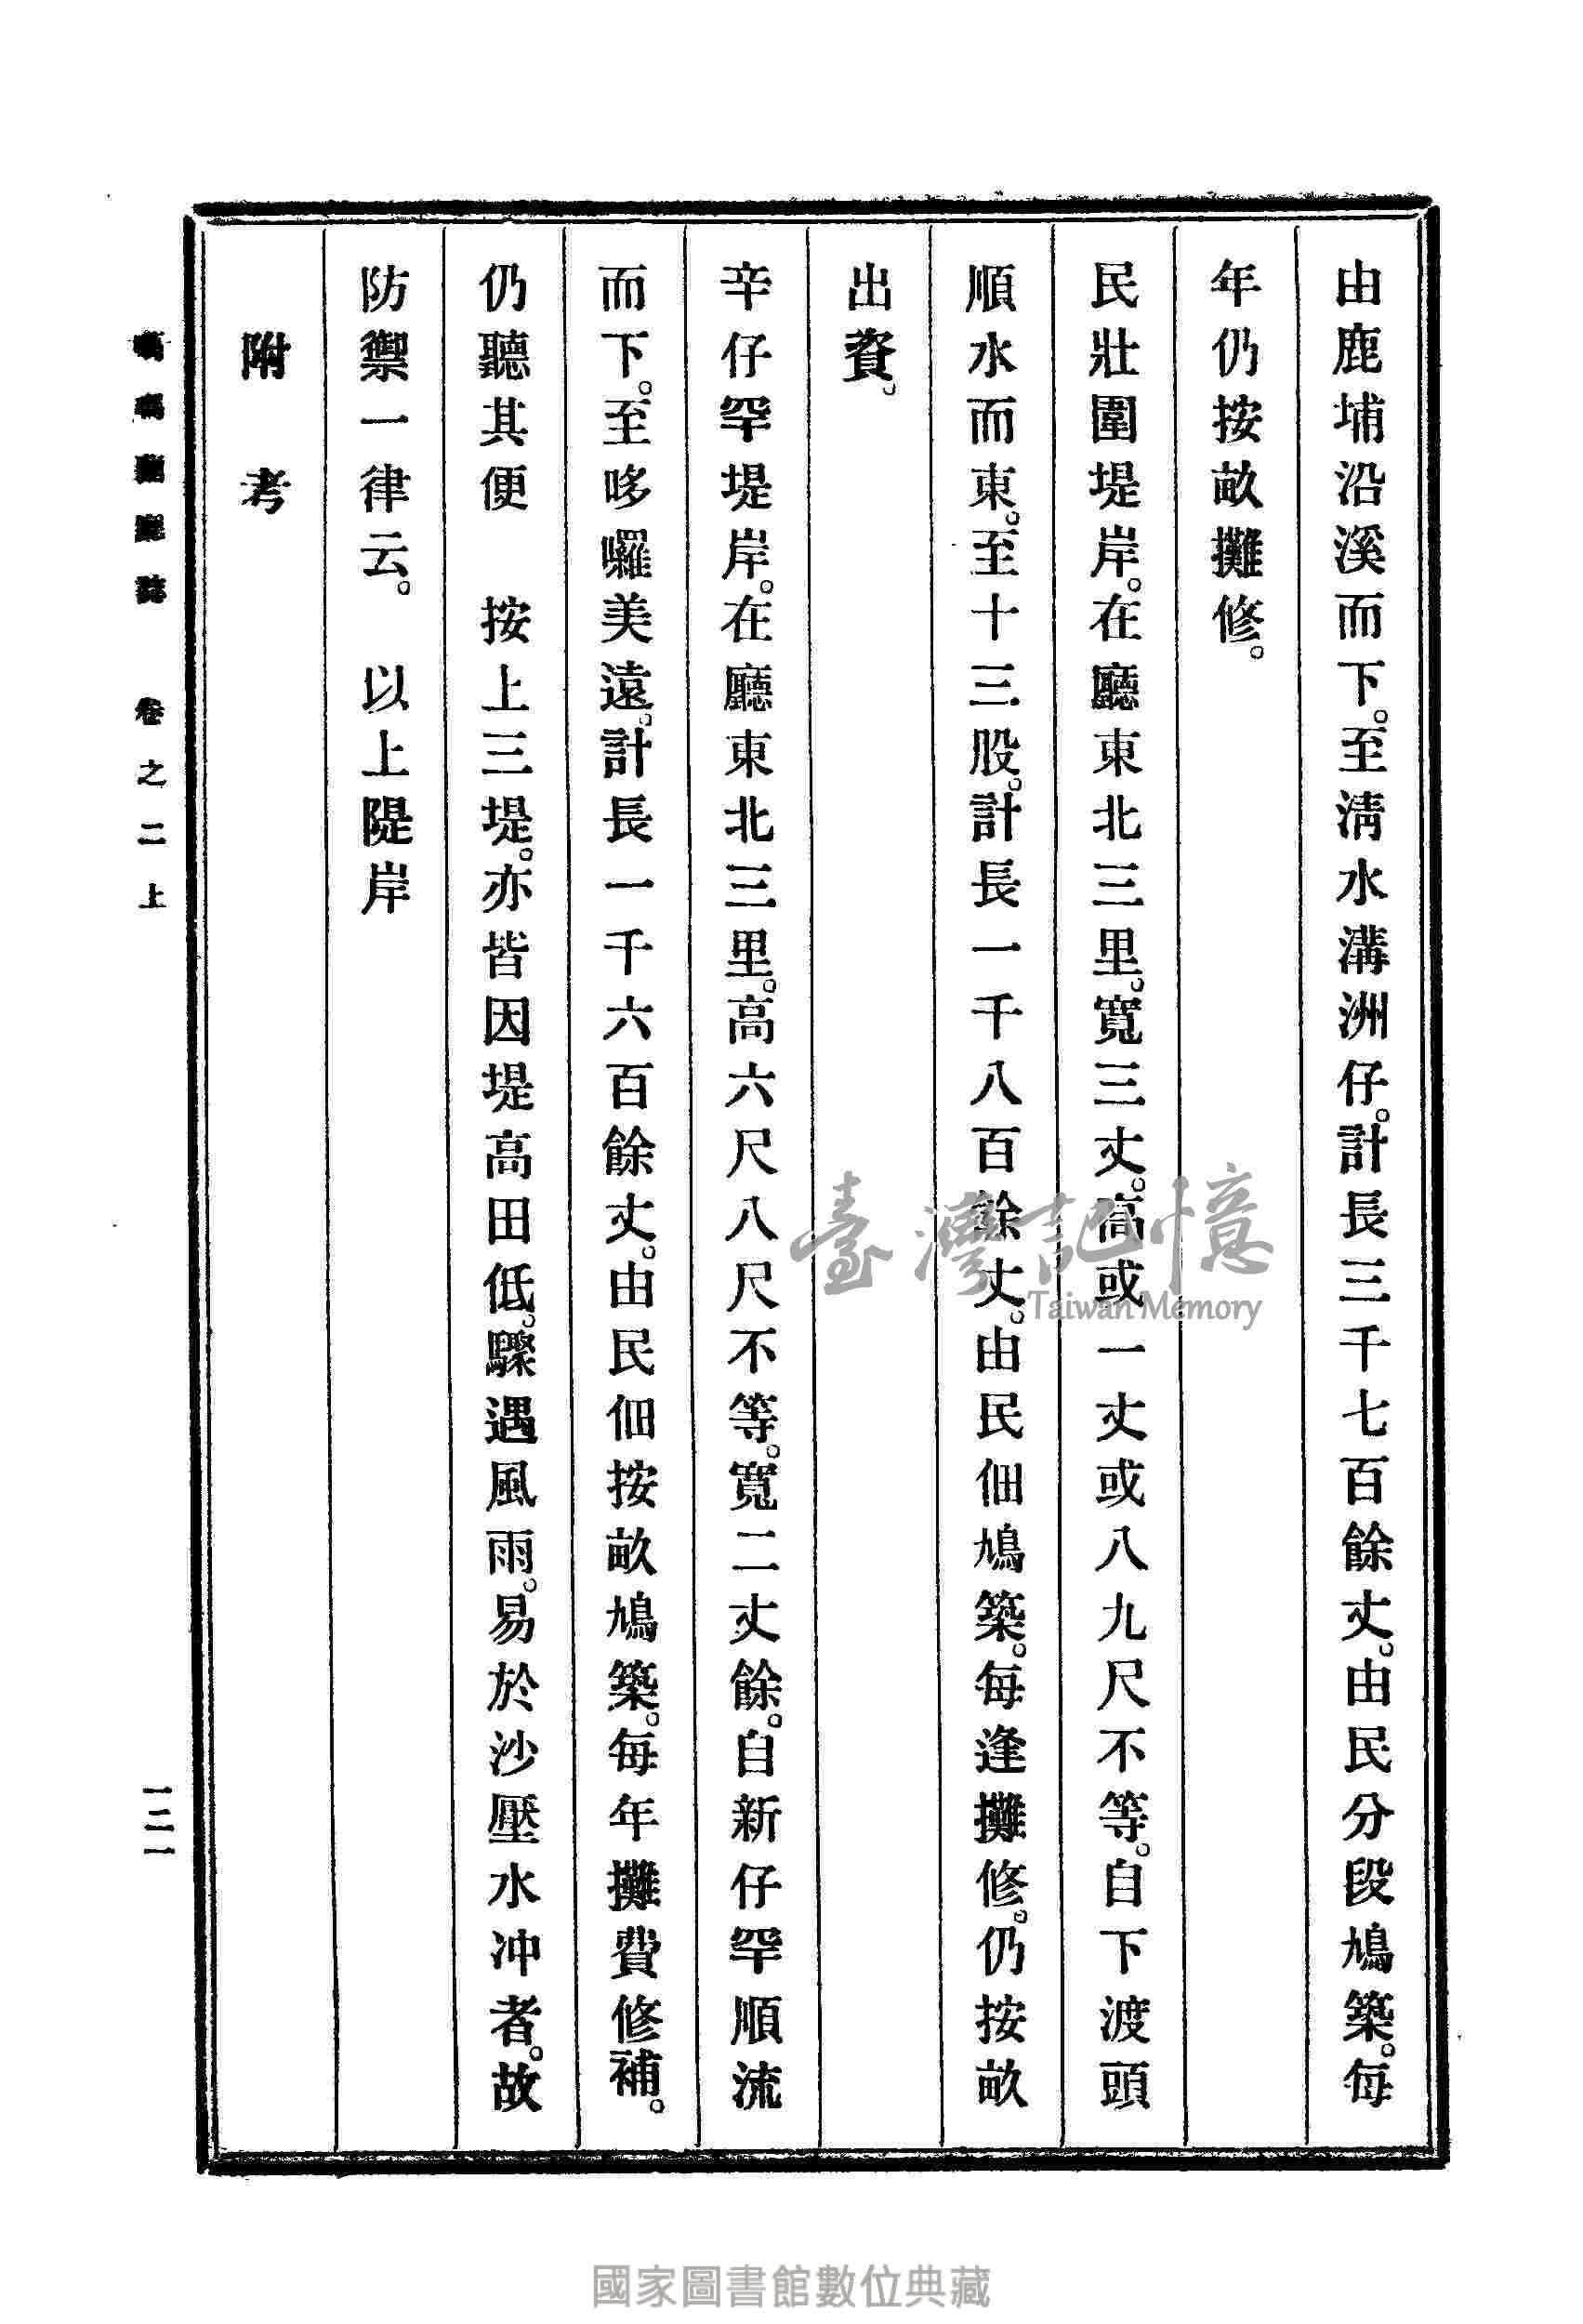 由鹿埔沿溪而下。至清水溝洲仔。計長三千七百餘丈。由民分段鳩築。每
年仍按畝攤修。
民壯圍堤岸。在廳東北三里。寬三丈。高或一丈或八九尺不等。自下渡頭
順水而東。至十三股。計長一千八百餘丈。由民佃鳩築。每逢攤修。仍按畝
出資。
辛仔罕堤岸。在廳東北三里。高六尺八尺不等。寬二丈餘。自新仔罕順流
而下。至哆囉美遠。計長一千六百餘丈。由民佃按畝鳩築。每年攤費修補。
仍聽其便　按上三堤。亦皆因堤高田低。驟遇風雨。易於沙壓水冲者。故
防禦一律云。　以上隄岸
附考
噶瑪蘭廳誌　卷之二上
一二一
臺灣記憶
Taiwan Memory
國家圖書館數位典藏